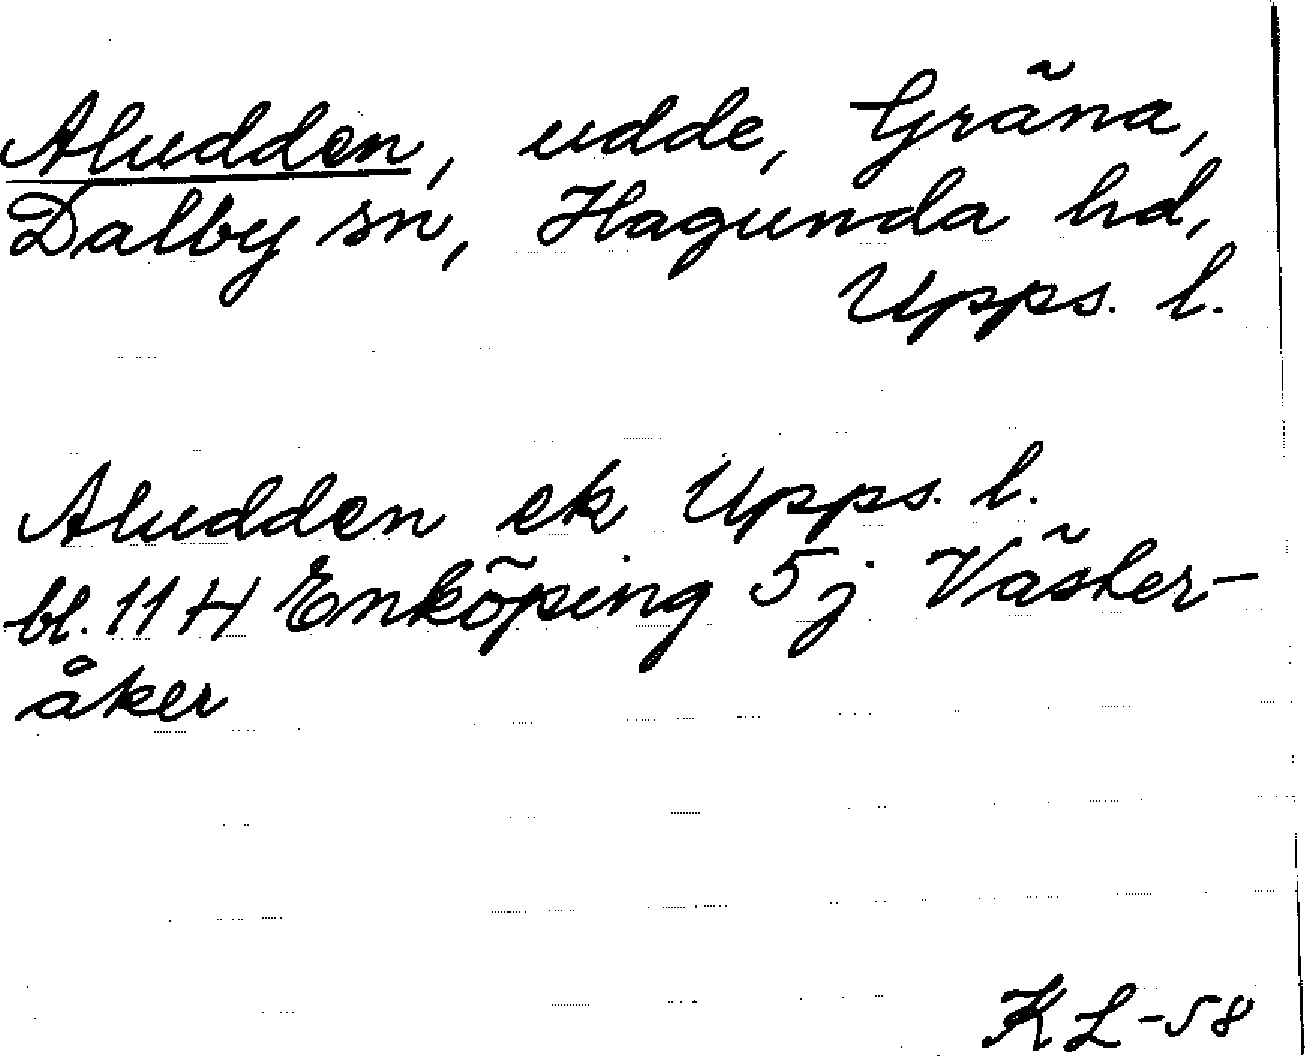 Aludden, udde, Gräna,
Dalby sn, Hagunda hd,
Upps. l.
Aludden ek Upps. l.
bl. 11 H Enköping 5j Väster-
åker
KL-58